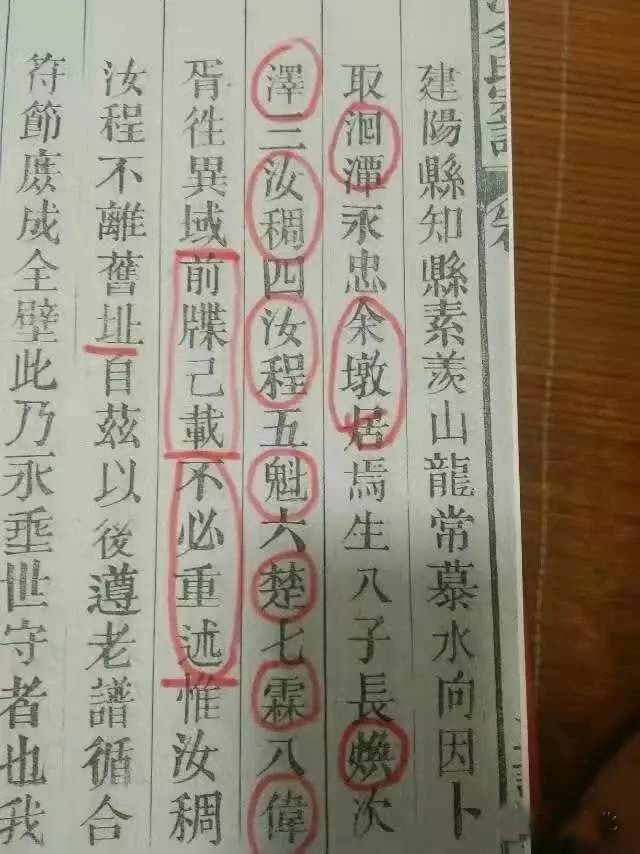 氏宗譜 卷
建陽縣知縣素羨山龍常慕水向因卜
取洄潭永忠余墩居焉生八子長煥次
澤三汝稠四汝程五魁六楚七霖八偉
胥徃異域前牒己載不必重述惟汝稠
汝程不離舊址自茲以後遵老譜循合
符節庶成全壁此乃永垂世守者也我